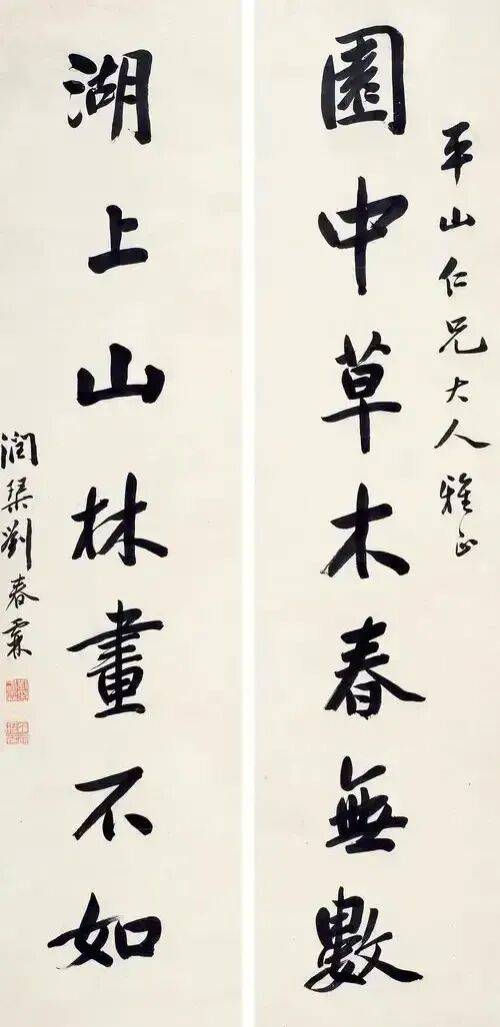 平山仁兄大人雅正
園中草木春無數
湖上山林畫不如
潤琴劉春霖